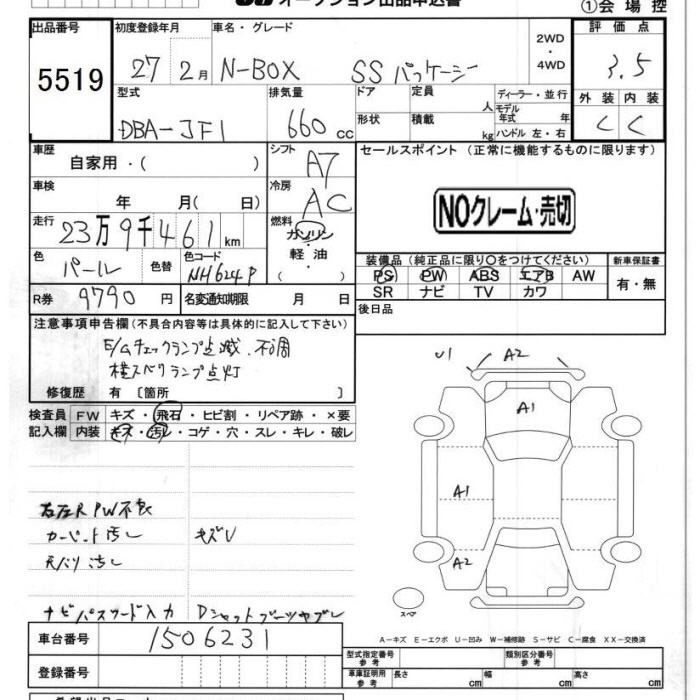 オークション出品申込書
①会場控
出品番号 初度登録年月 車名・グレード 2WD・4WD 評価点
5519 27 2月 N-BOX SSパッケージ 3.5
型式 排気量 ドア 定員 人 ディーラー・並行 外装 内装
DBA-JF1 660cc 形状 積載 kg モデル年式 年 ハンドル 左・右 C C
車歴 自家用・( ) シフト A7 セールスポイント (正常に機能するものに限ります)
車検 年 月( 日) 冷房 AC NOクレーム・売切
走行 23万9千461km 燃料 ガソリン・軽油・( )
色 パール 色替 色コード NH624P
装備品(純正品に限り○をつけてください) 新車保証書
PS PW ABS エアB AW 有・無
SR ナビ TV カワ
R券 9790円 名変通知期限 月 日 後日品
注意事項申告欄(不具合内容等は具体的に記入して下さい)
E/Gチェックランプ点滅、不調
横スベリランプ点灯
修復歴 有 〔箇所 〕
U1 A2
A1
検査員 FW キズ・飛石・ヒビ割・リペア跡・×要
記入欄 内装 キズ・汚レ・コゲ・穴・スレ・キレ・破レ
A1
右左R PW不良
カーペット汚し キズV
天バリ汚し
A2
スペア
ナビパスワード入力 Dシャフトブーツヤブレ
A-キズ E-エクボ U-凹み W-補修跡 S-サビ C-腐食 XX-交換済
車台番号 1506231
型式指定番号 参考 類別区分番号 参考
登録番号 車庫証明用 参考 長さ cm 幅 cm 高さ cm